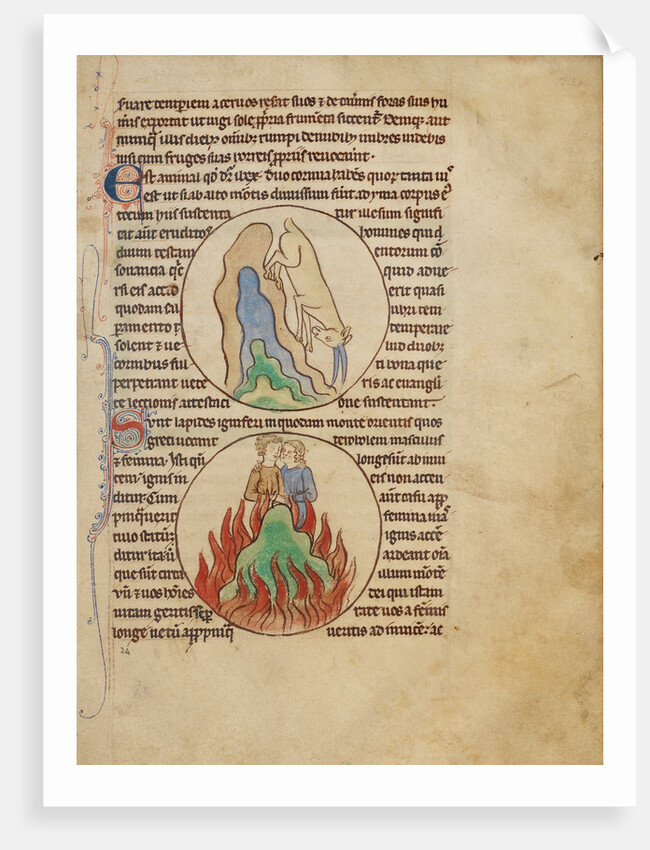 seruare temperiem aceruos refert suos & de cauernis foras suis hu
meris exportat ut iugi sole ppria frumenta siccent. Deniq; aut
nunq illis dieb; omib; rumpi de nubib; imbres uidebis
nisi cum fruges suas horreis ppriis reuocauint.
Est animal qd dr ibex duo cornua habens quoz tanta uis
est ut si ab alto montis dimissum fuit ad yma corpus eius
totum hiis sustenta tur illesum signifi
cat aut eruditos homines qui d
diuinum testam entorum con
sonancia qcq quid adue
rsi eis accid erit quasi
quodam sau bri tem
peramento t temperare
solent & ue lud duob;
cornibus ful ti bona que
perpetrant uete ris ac euangeli
ce lectionis attestaci one sustentant.
Sunt lapides igniferi in quodam monte orientis quos
grece uocant terobolem masculus
& femina. Isti qn longe sunt ab inui
cem ignis in eis non accen
ditur. Cum aut casu app
pinquerit femina mas
culo statim ignis accen
ditur ita ut ardeant oma
que sunt circa illum monte
Vn & uos homines dei qui istam
uitam geritis sepe rate uos a feminis
longe ne cum appropinq ueritis ad inuicem ac
24